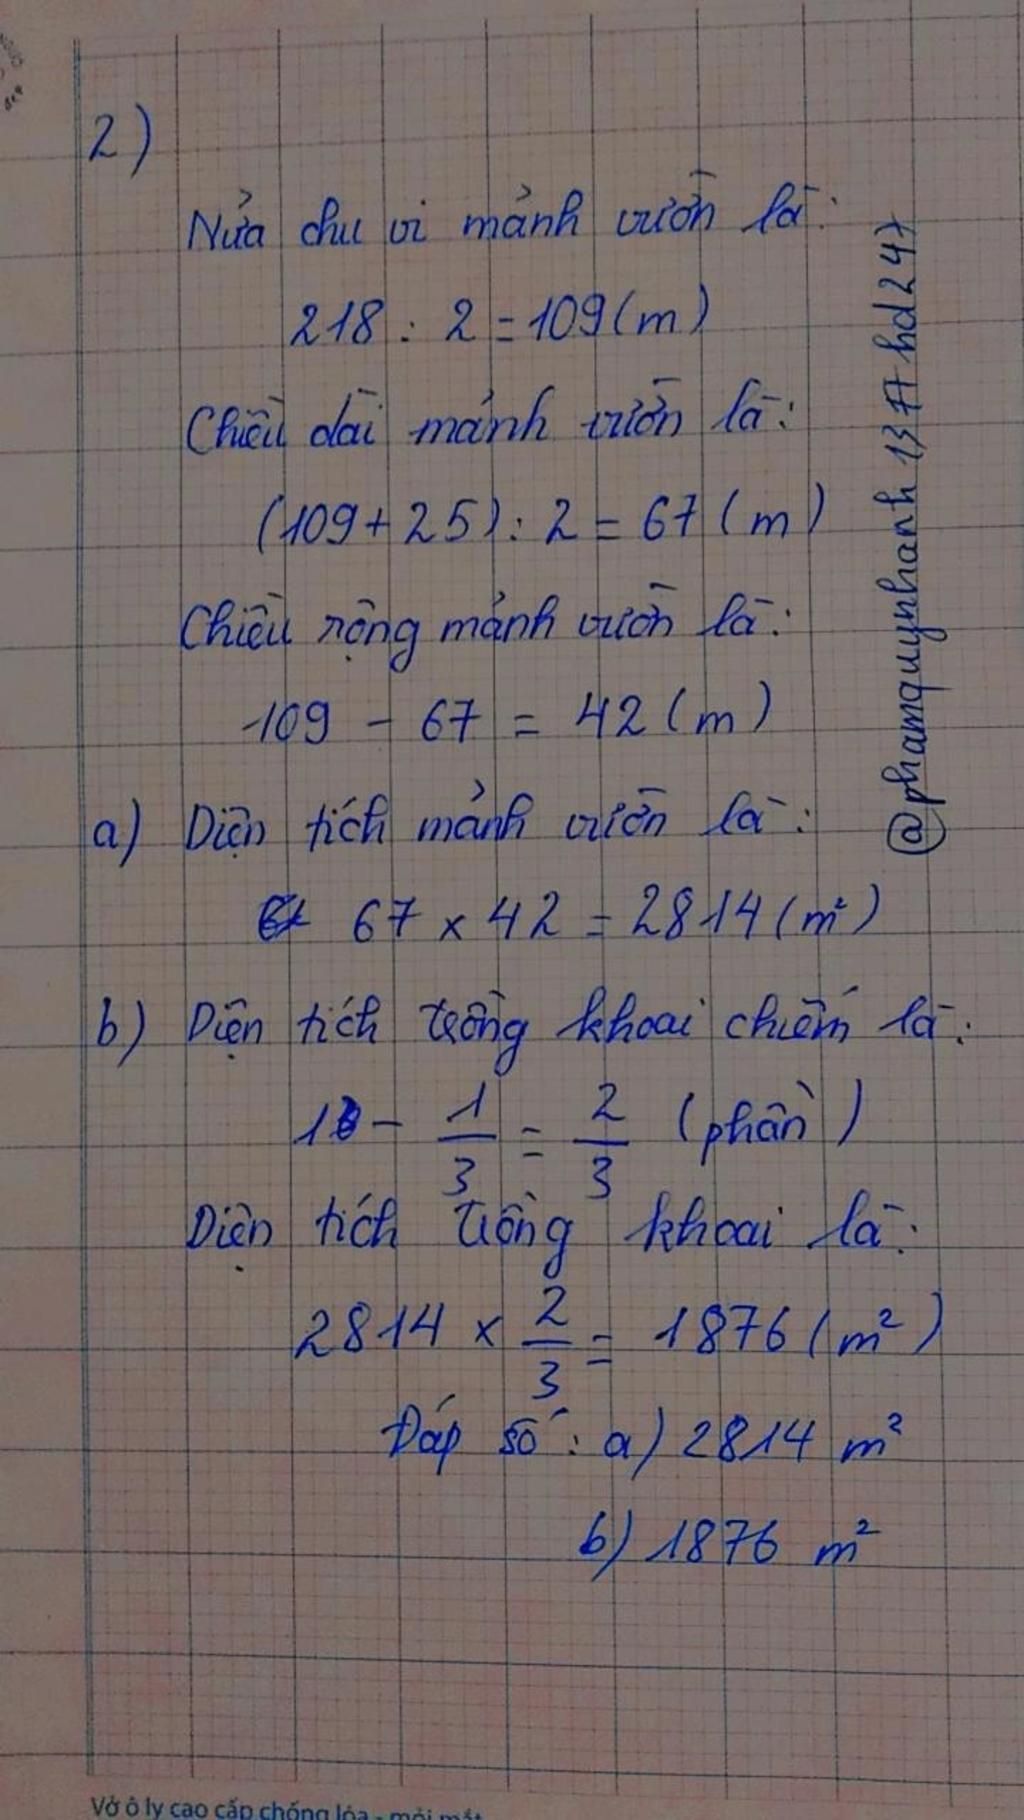 2)
Nửa chu vi mảnh vườn là:
218 : 2 = 109 (m)
Chiều dài mảnh vườn là:
(109 + 25) : 2 = 67 (m)
Chiều rộng mảnh vườn là:
109 - 67 = 42 (m)
a) Diện tích mảnh vườn là:
67 x 42 = 2814 (m²)
b) Diện tích trồng khoai chiếm là:
1 - 1/3 = 2/3 (phần)
Diện tích trồng khoai là:
2814 x 2/3 = 1876 (m²)
Đáp số : a) 2814 m²
b) 1876 m²
@phamquynhanh1377hd247
Vở ô ly cao cấp chống lóa - mỏi mắt